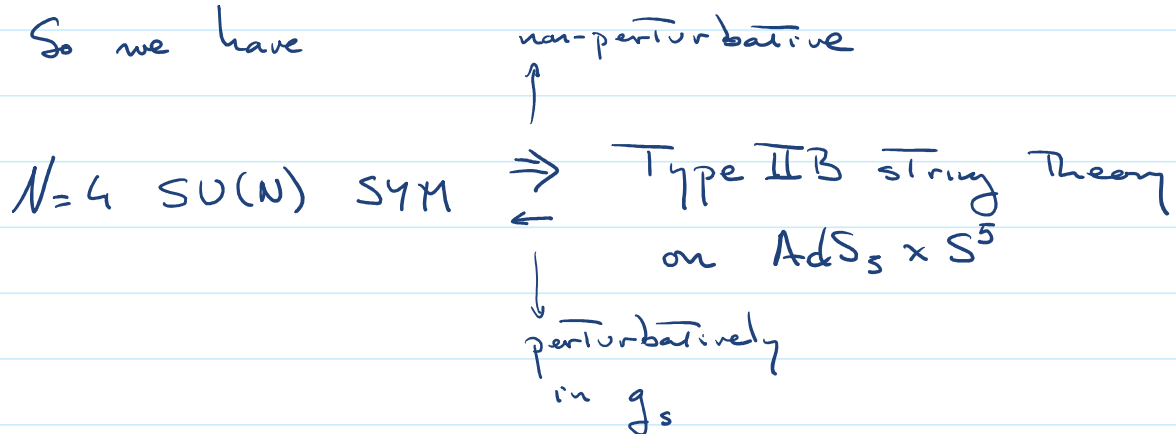 So we have non-perturbative
↑
N=4 SU(N) SYM ⇒ Type IIB string Theory
← on AdS₅ × S⁵
↓
perturbatively
in gₛ